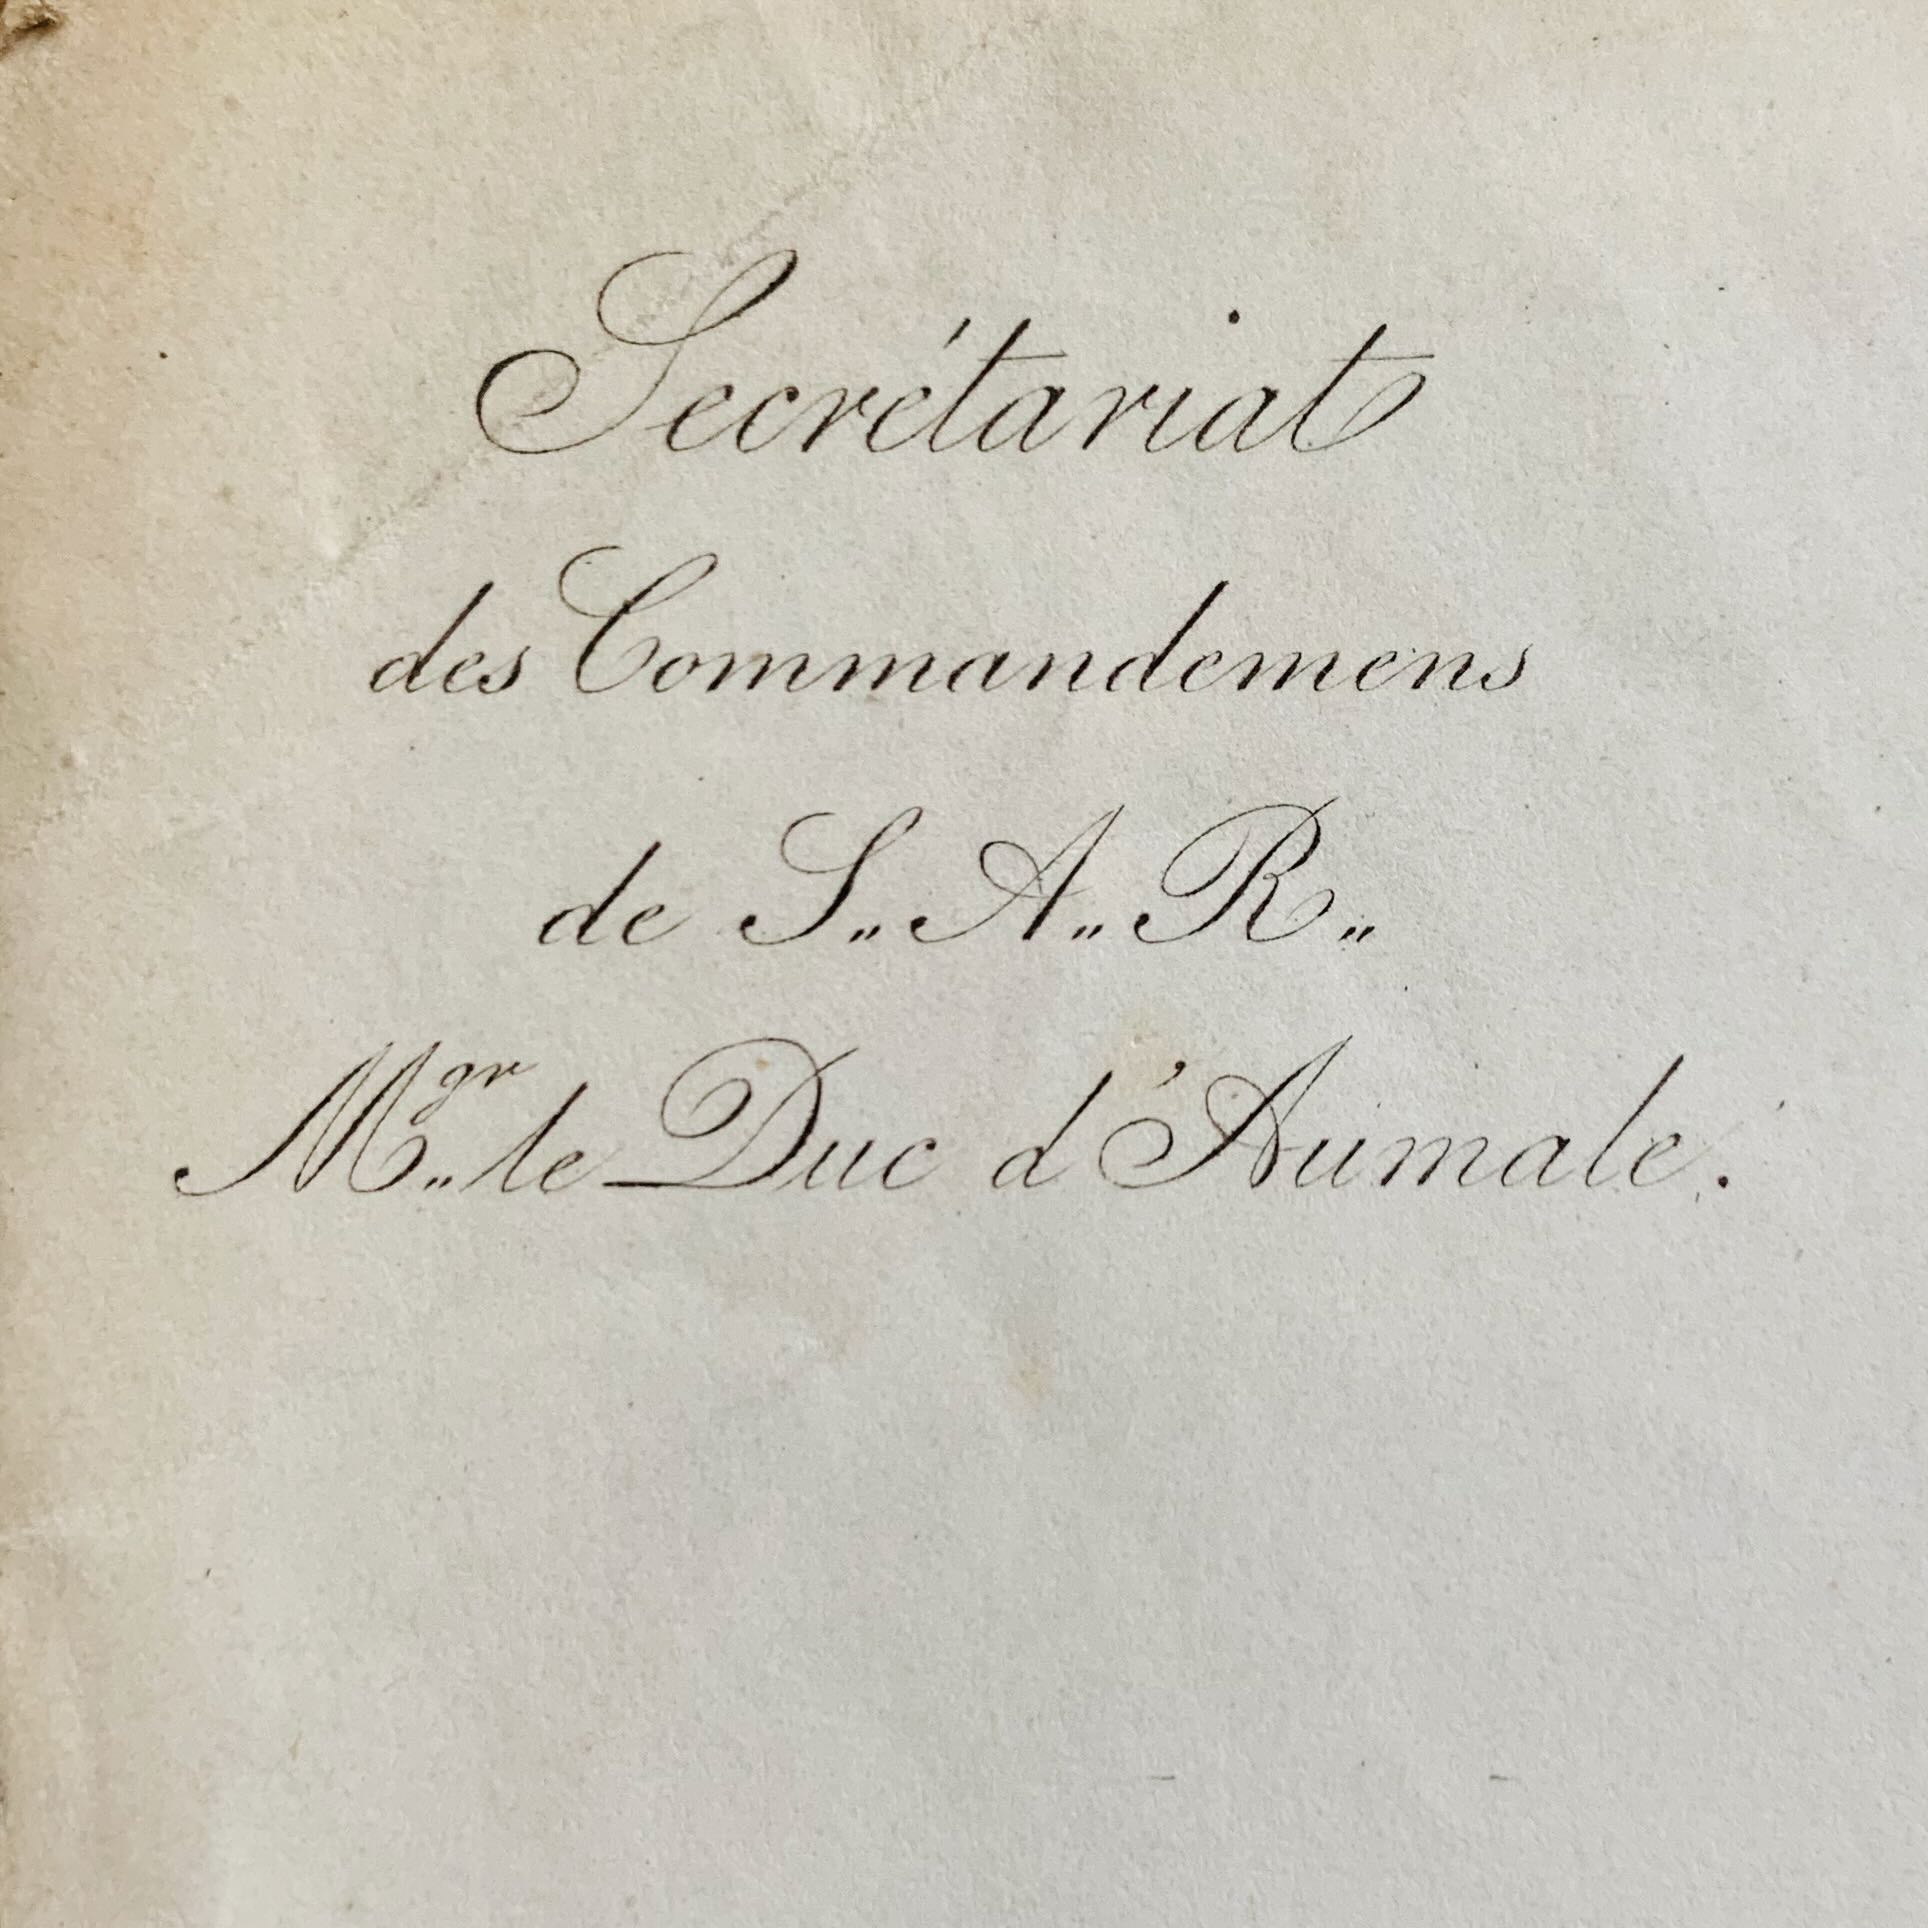 Secrétariat
des Commandemens
de S.. A.. R..
Mgr.. le Duc d'Aumale.